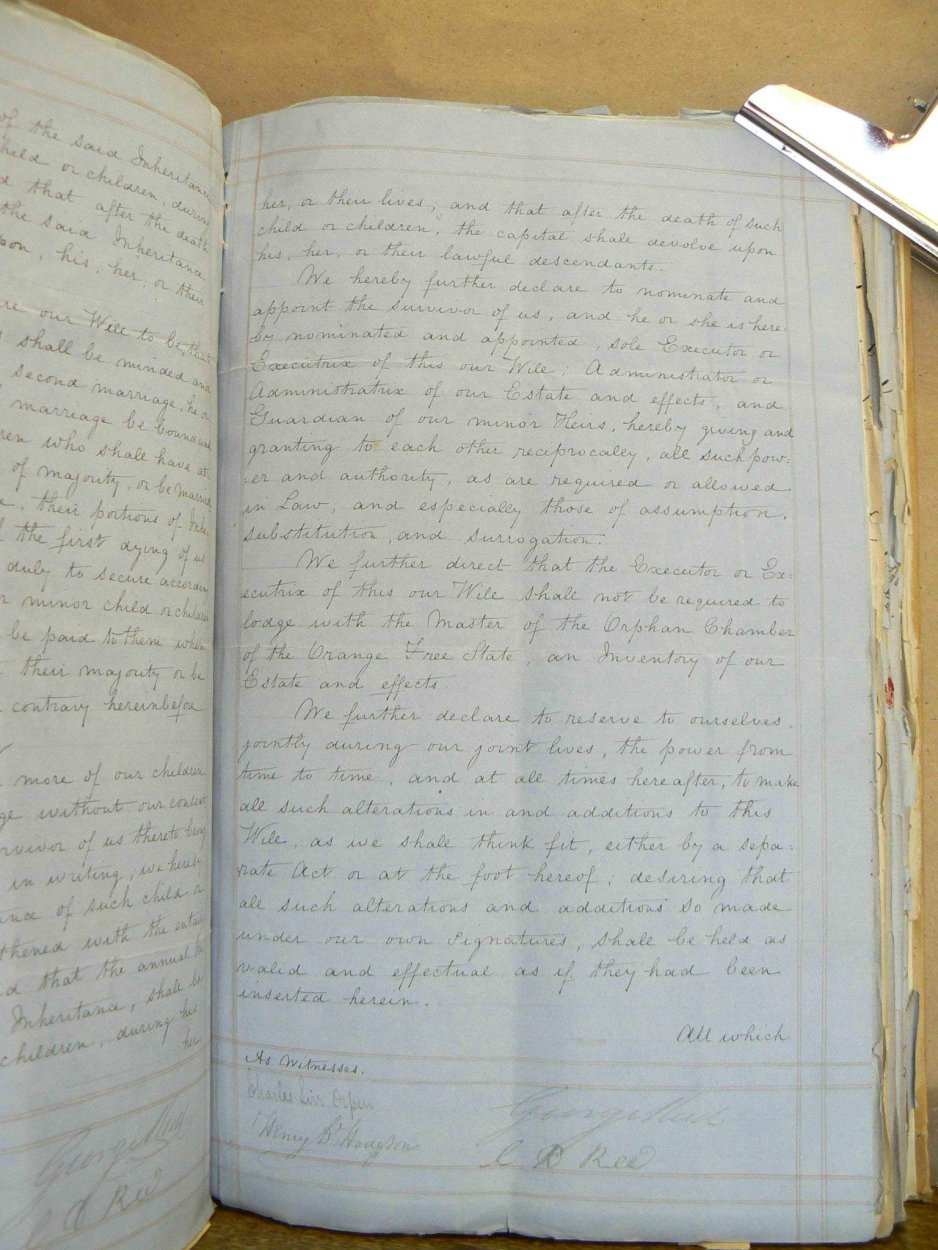 of the said Inheritance
child or children, during
d that after the death
the said Inheritance
pon, his, her, or their
re our Will to be, that
shall be minded and
second marriage, he or
marriage be bound and
ren who shall have at-
of majority, or be married
their portions of Inhe-
the first dying of us
duly to secure according
r minor child or children
be paid to them when
their majority or be
contrary hereinbefore
more of our children
ge without our consent
rvivor of us thereto being
in writing, we hereby
ance of such child or
thened with the entail
d that the annual
Inheritance, shall be
children, during his
her
C D Reed
her, or their lives; and that after the death of such
child or children, the capital shall devolve upon
his, her, or their lawful descendants.
We hereby further declare to nominate and
appoint the survivor of us, and he or she is here-
by nominated and appointed, sole Executor or
Executrix of this our Will; Administrator or
Administratrix of our Estate and effects, and
Guardian of our minor Heirs, hereby giving and
granting to each other reciprocally, all such pow-
-er and authority, as are required or allowed
in Law, and especially those of assumption,
substitution, and surrogation.
We further direct that the Executor or Ex-
ecutrix of this our Will shall not be required to
lodge with the Master of the Orphan Chamber
of the Orange Free State, an Inventory of our
Estate and effects
We further declare to reserve to ourselves,
jointly during our joint lives, the power from
time to time, and at all times hereafter, to make
all such alterations in and additions to this
Will, as we shall think fit, either by a sepa-
rate Act or at the foot hereof; desiring that
all such alterations and additions so made
under our own signatures, shall be held as
valid and effectual as if they had been
inserted herein.
All which
As Witnesses.
Charles Orpen
Henry B. Hodgson
George
C D Reed